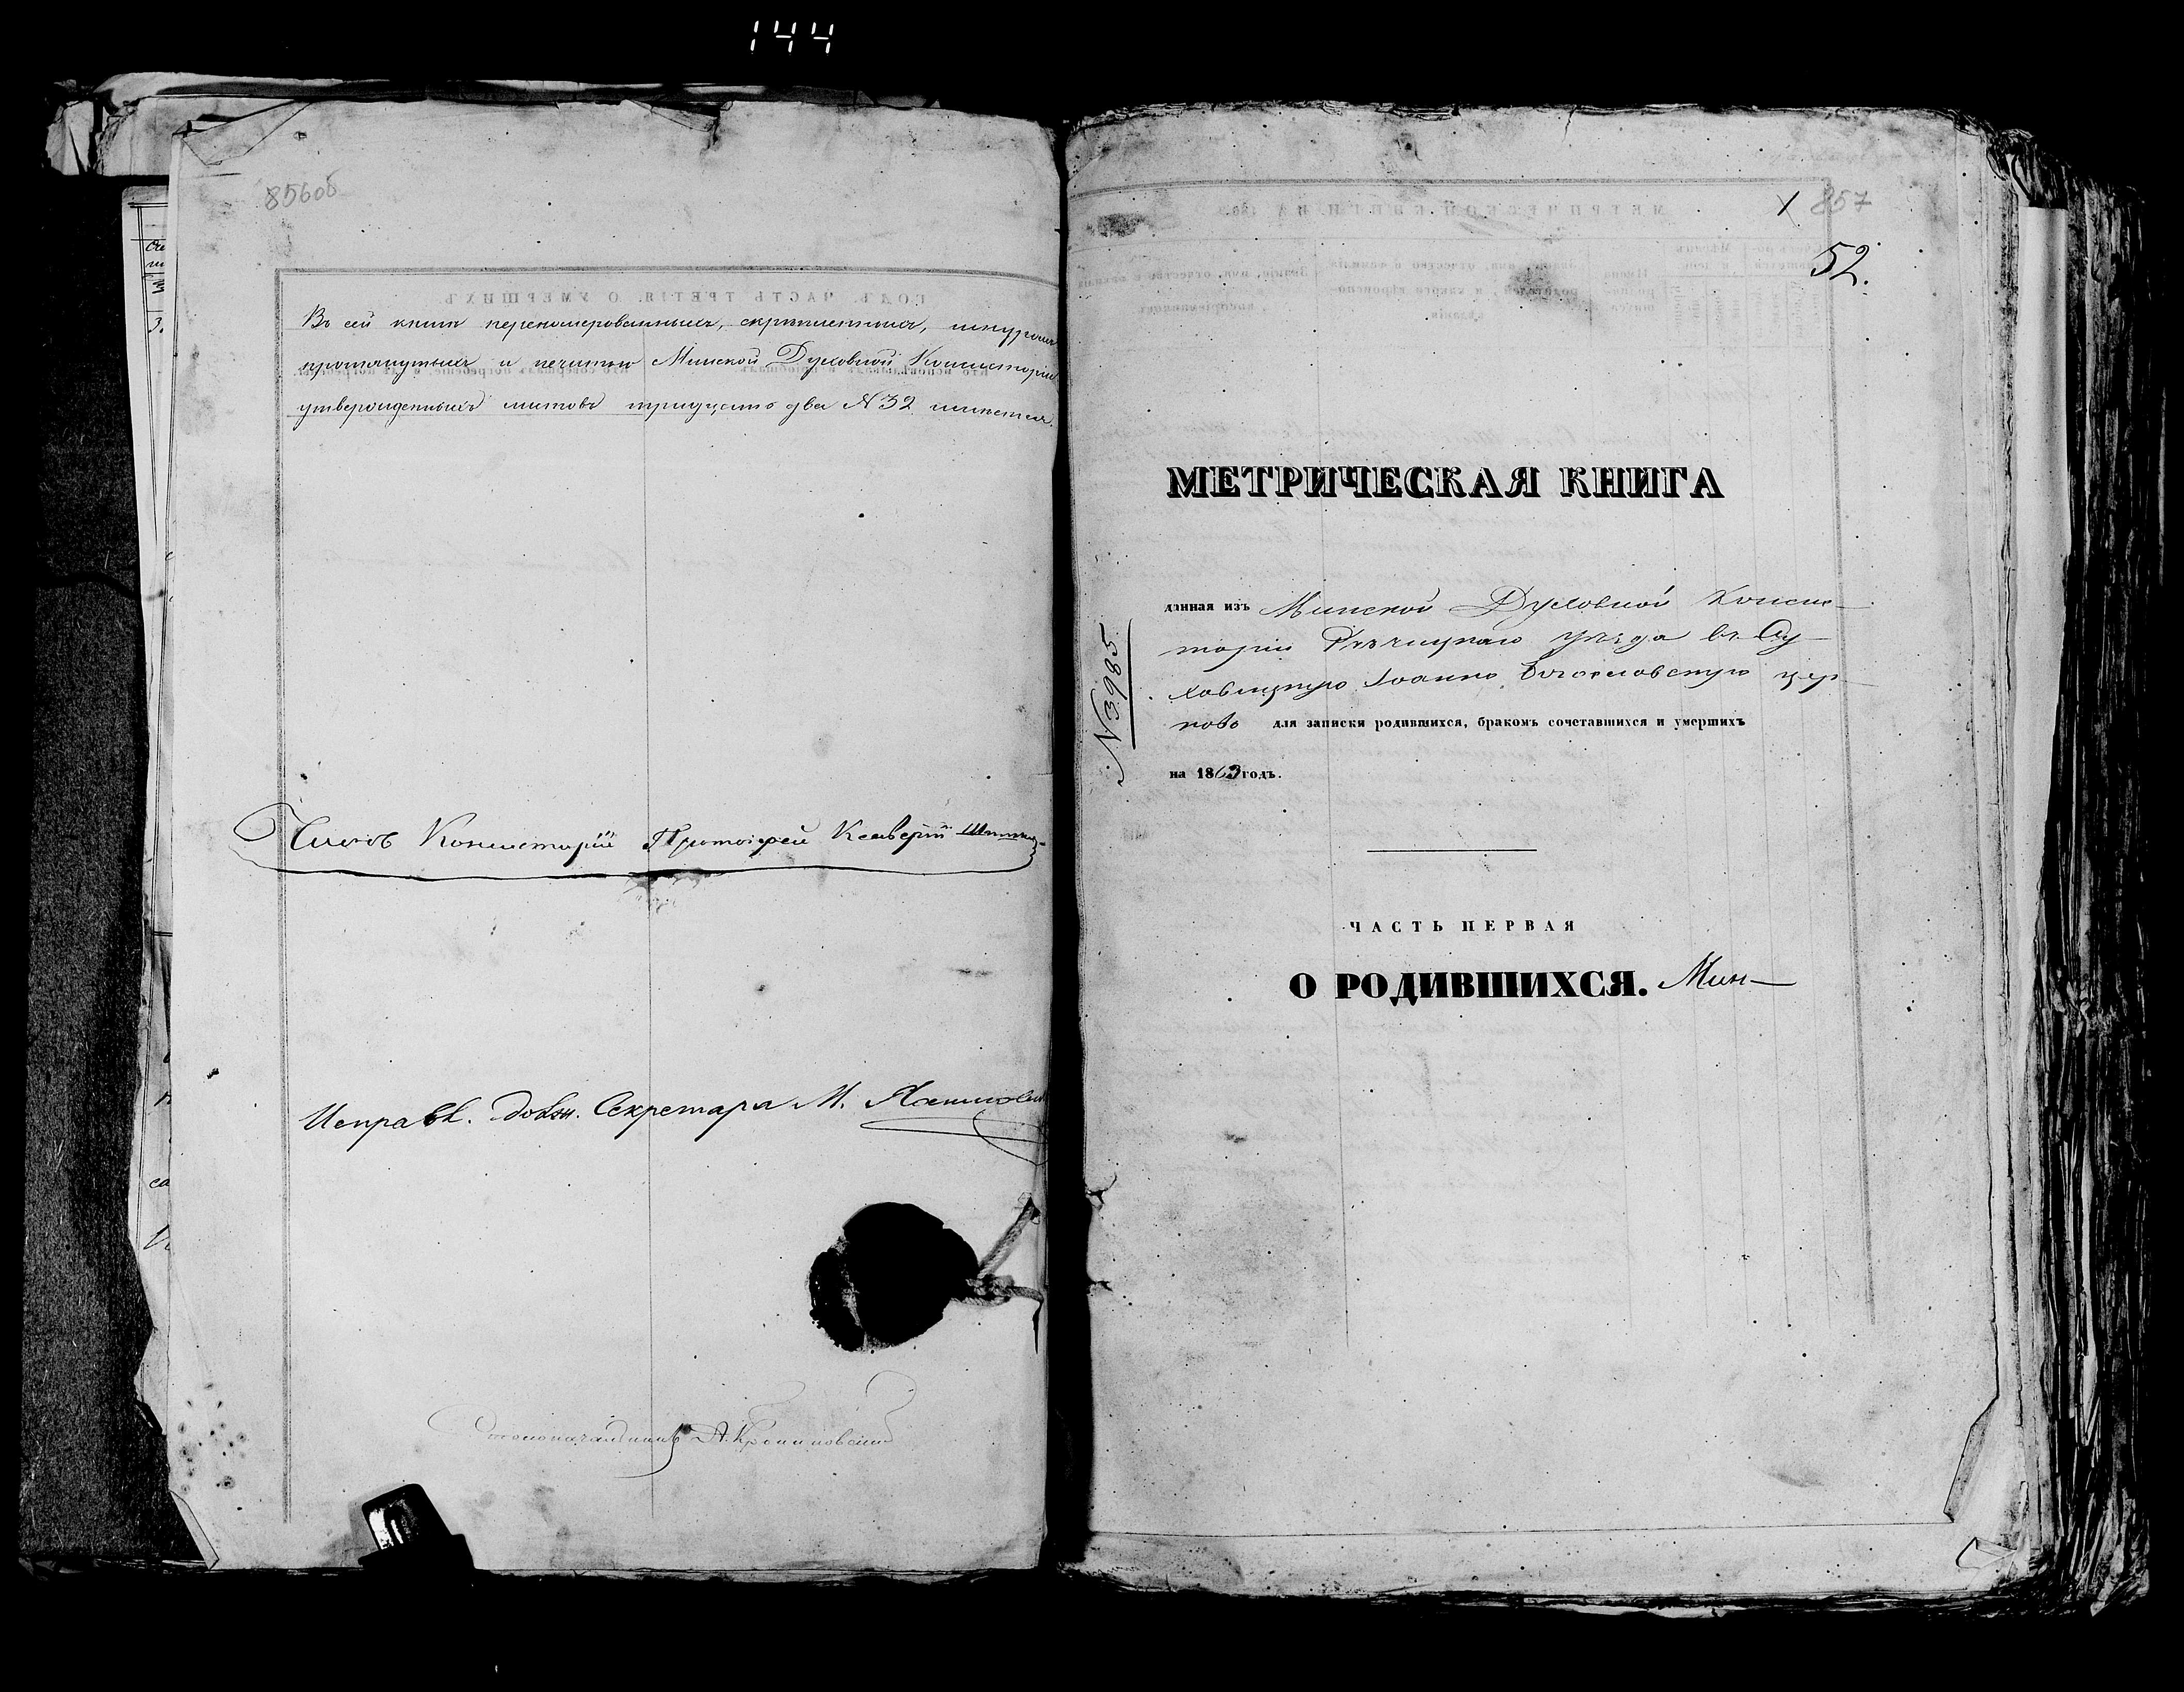 144
856об
Въ сей книгѣ перенумерованныхъ, скрѣпленныхъ, шнуромъ
протянутыхъ и печатью Минской Духовной Консисторіи
утвержденныхъ листовъ тридцать два №32 имѣется.
Членъ Консисторіи Протоіерей Ксаверій
Исправл. должн. Секретаря М.
Столоначальникъ А.
857
52.
МЕТРИЧЕСКАЯ КНИГА
№3985
данная изъ Минской Духовной Конси-
торіи Рѣчицкаго уѣзда въ Су-
ховицкую Іоанно Богословскую цер-
ковь для записки родившихся, бракомъ сочетавшихся и умершихъ
на 1863 годъ.
ЧАСТЬ ПЕРВАЯ
О РОДИВШИХСЯ. Мин-